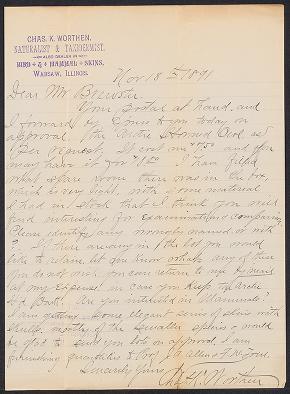 CHAS. K. WORTHEN,
NATURALIST & TAXIDERMIST,
ALSO DEALER IN
BIRD & MAMMAL SKINS,
WARSAW, ILLINOIS.
Nov 18th 1891
Dear Mr Brewster
Your Postal at hand, and
I forward by Express to you today on
approval, the Arctic Horned Owl as
per request, It cost me $4.50 and you
may have it for $4.50 I have filled
what spare room there was in the box,
which is very light, with some material
I had in stock that I think you will
find interesting for examination & comparing.
Please identify any wrongly named or not
If there are any in the lot you would
like to retain, let me know what any of them
you do not wish you can return to me
at my expense in case you keep the Arctic
H'd Owl. Are you interested in Mammals?
I am getting some elegant series of skins with
skulls, mostly of the smaller species & would
be glad to send you lots on approval, I am
furnishing quantities to Prof. J. A. Allen of N. York.
Sincerely Yours
Chas. K. Worthen